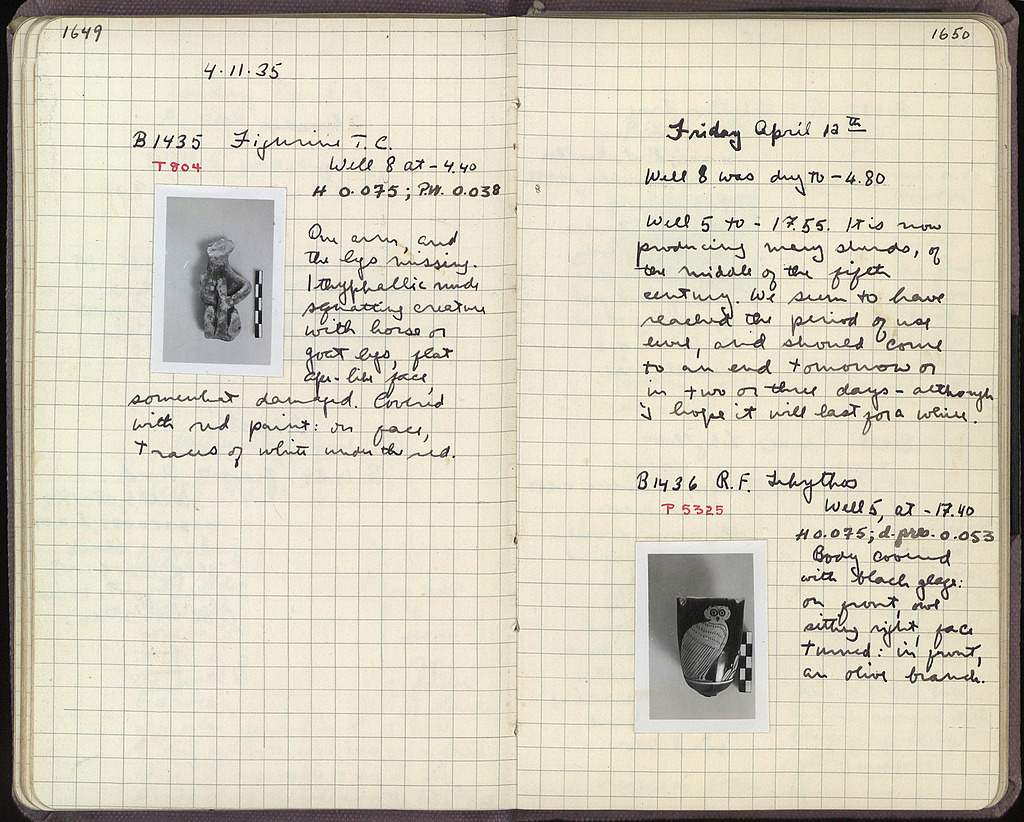 1649
4·11·35
B1435 Figurine T.C.
T 804
Well 8 at -4.40
H 0.075; P.W. 0.038
One arm, and
the legs missing.
Ithyphallic nude
squatting creature
with horse or
goat legs, flat
ape-like face,
somewhat damaged. Covered
with red paint: on face,
traces of white under the red.
1650
Friday April 12th
Well 8 was dug to -4.80
Well 5 to -17.55. It is now
producing many sherds, of
the middle of the fifth
century. We seem to have
reached the period of use
level, and should come
to an end tomorrow or
in two or three days - although
I hope it will last for a while.
B1436 R.F. Lekythos
P 5325
Well 5, at -17.40
H 0.075; d. pres. 0.053
Body covered
with black glaze:
on front, owl
sitting right, face
turned: in front,
an olive branch.